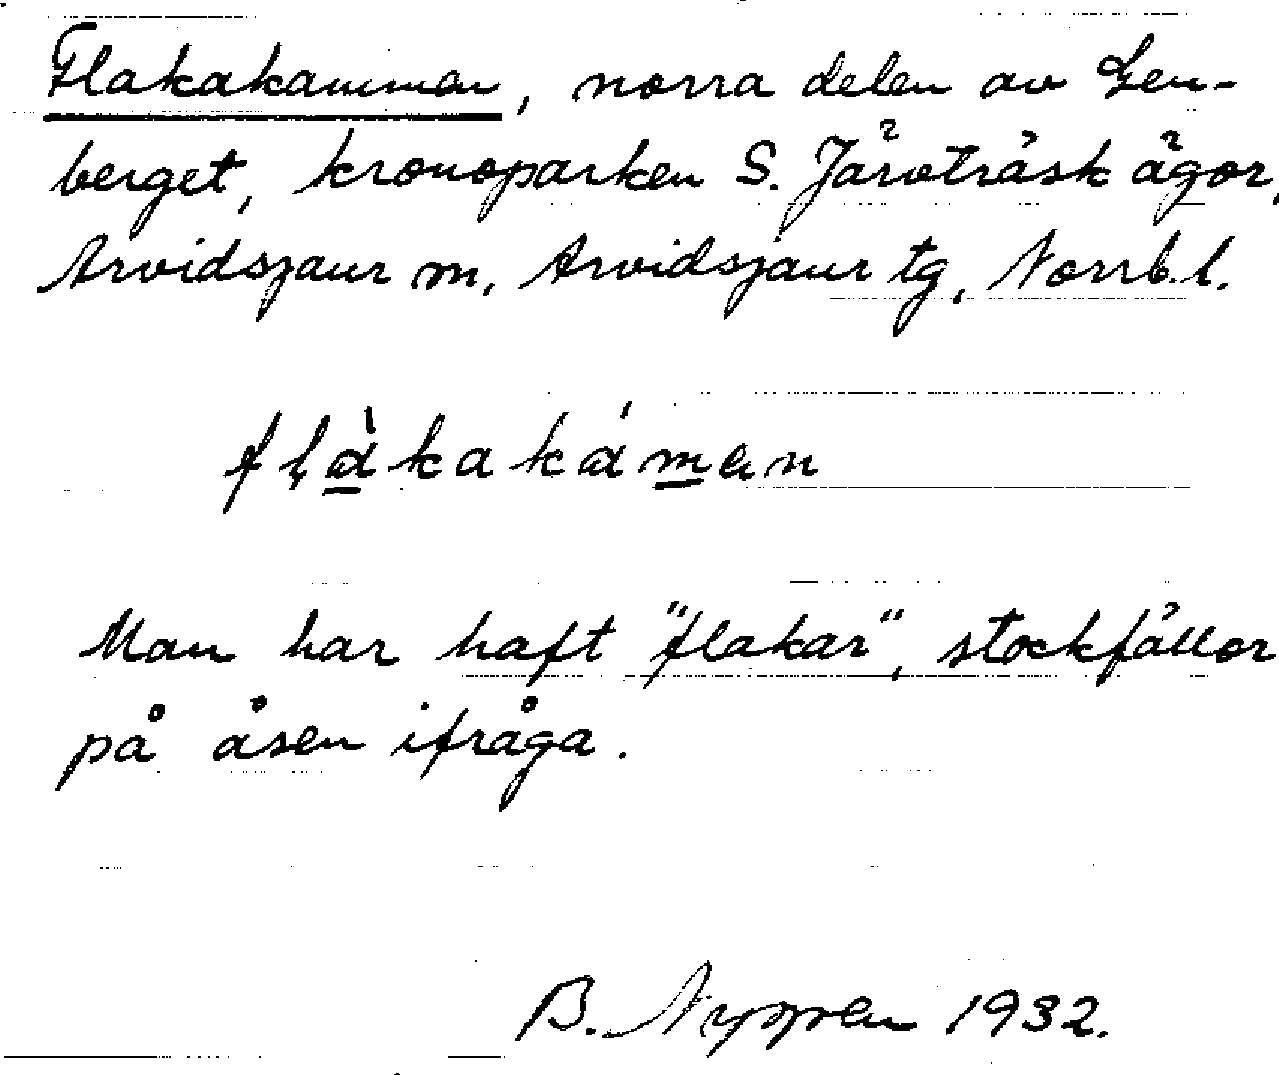 Flakakammen, norra delen av Len-
berget, kronoparken S. Järvträsk ägor,
Arvidsjaur sn, Arvidsjaur tg, Norrb. l.
flàkakámen
Man har haft "flakar", stockfällor
på åsen ifråga.
B. 1932.